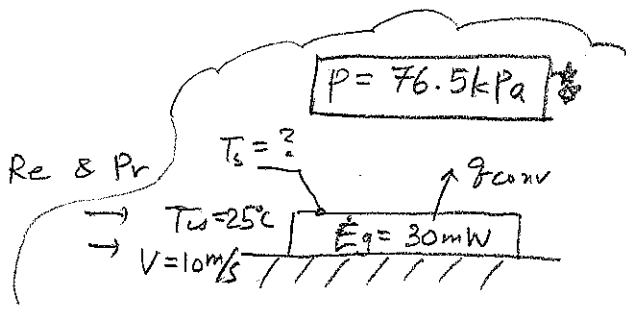 P = 76.5kPa
Ts = ?
Re & Pr
qconv
T∞=25°C
Ėg = 30mW
V=10m/s